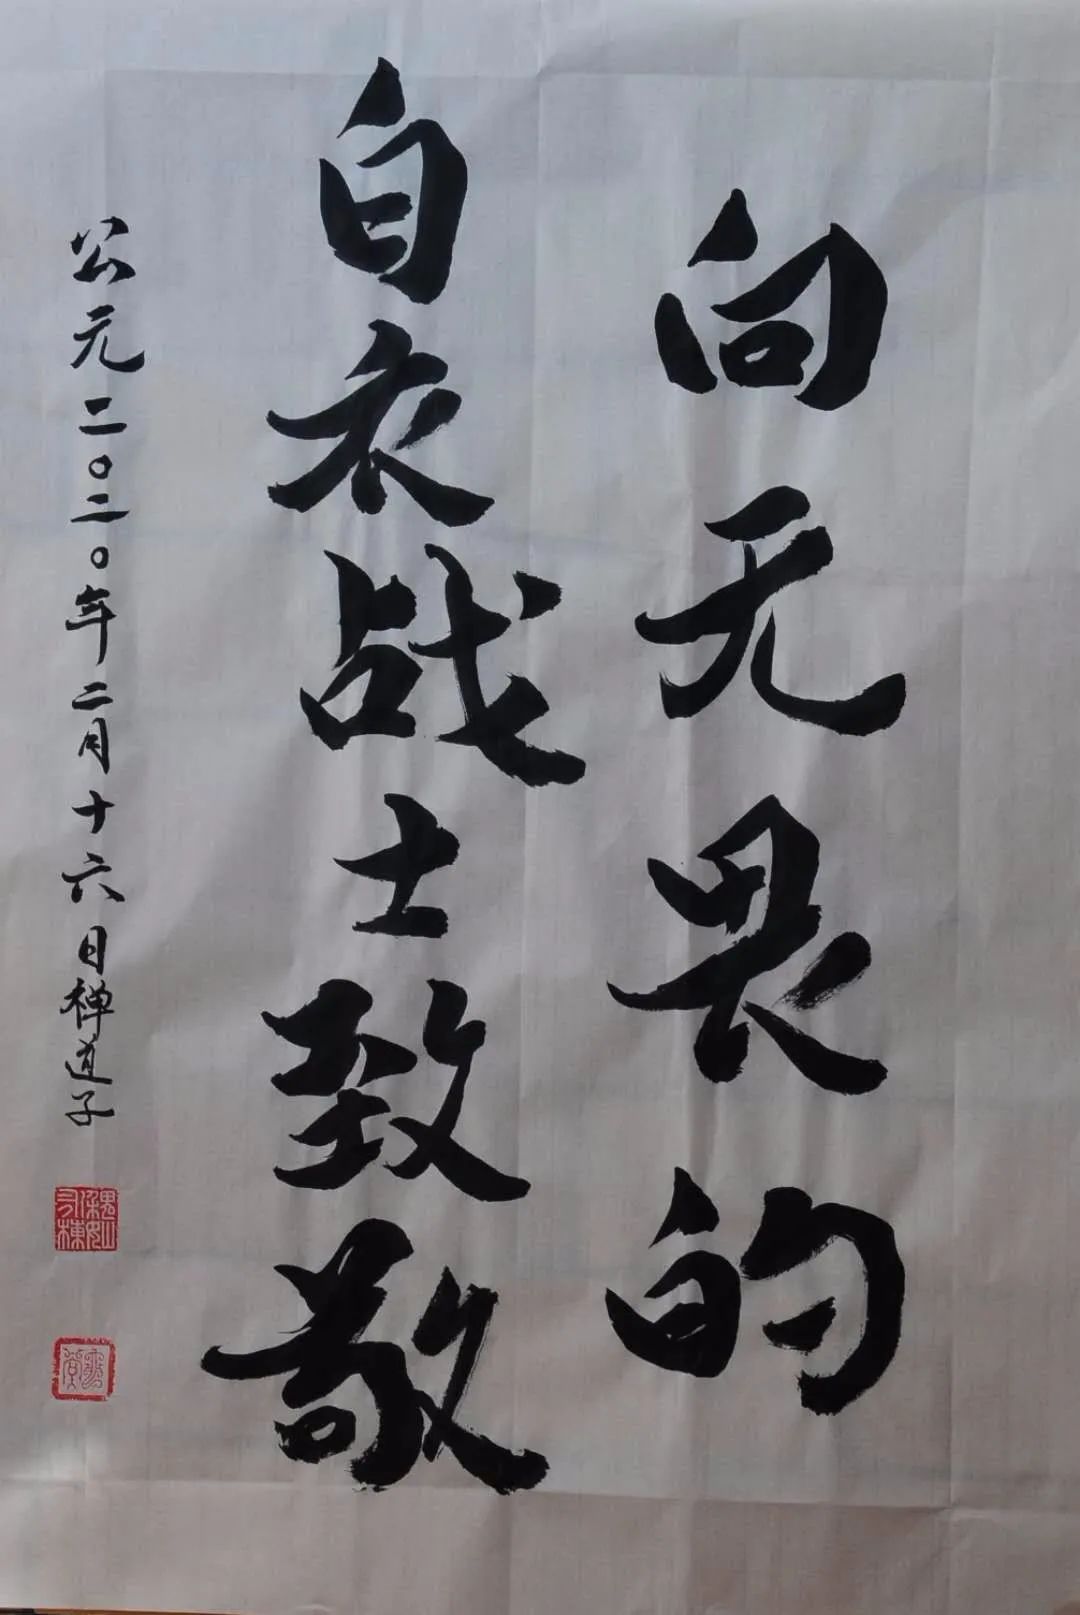 向无畏的
白衣战士致敬
公元二〇二〇年二月十六日禅道子